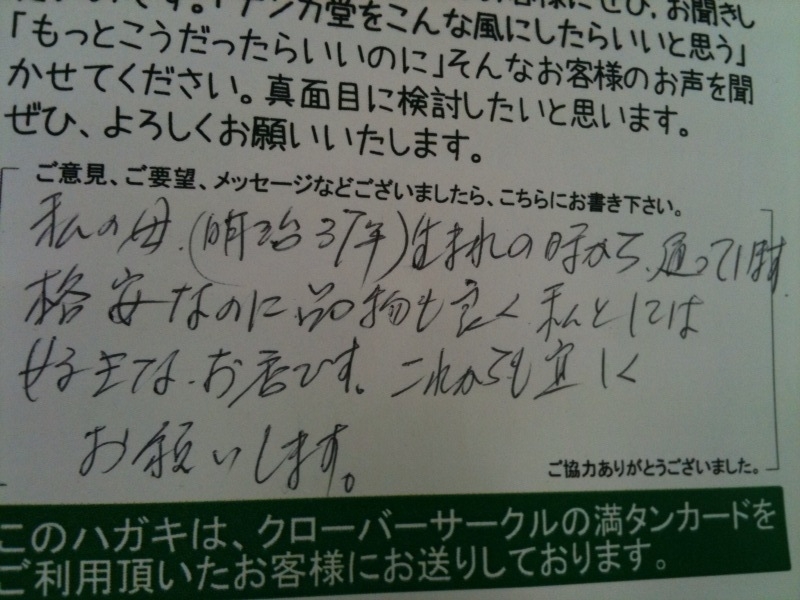 です。
カ堂をこんな風にしたらいいと思う」
「もっとこうだったらいいのに」そんなお客様のお声を聞
かせてください。真面目に検討したいと思います。
ぜひ、よろしくお願いいたします。
ご意見、ご要望、メッセージなどございましたら、こちらにお書き下さい。
私の母、(明治37年)生まれの時から、通っています
格安なのに品物も良く私とには
好きな、お店です。これからも宜しく
お願いします。
ご協力ありがとうございました。
このハガキは、クローバーサークルの満タンカードを
ご利用頂いたお客様にお送りしております。